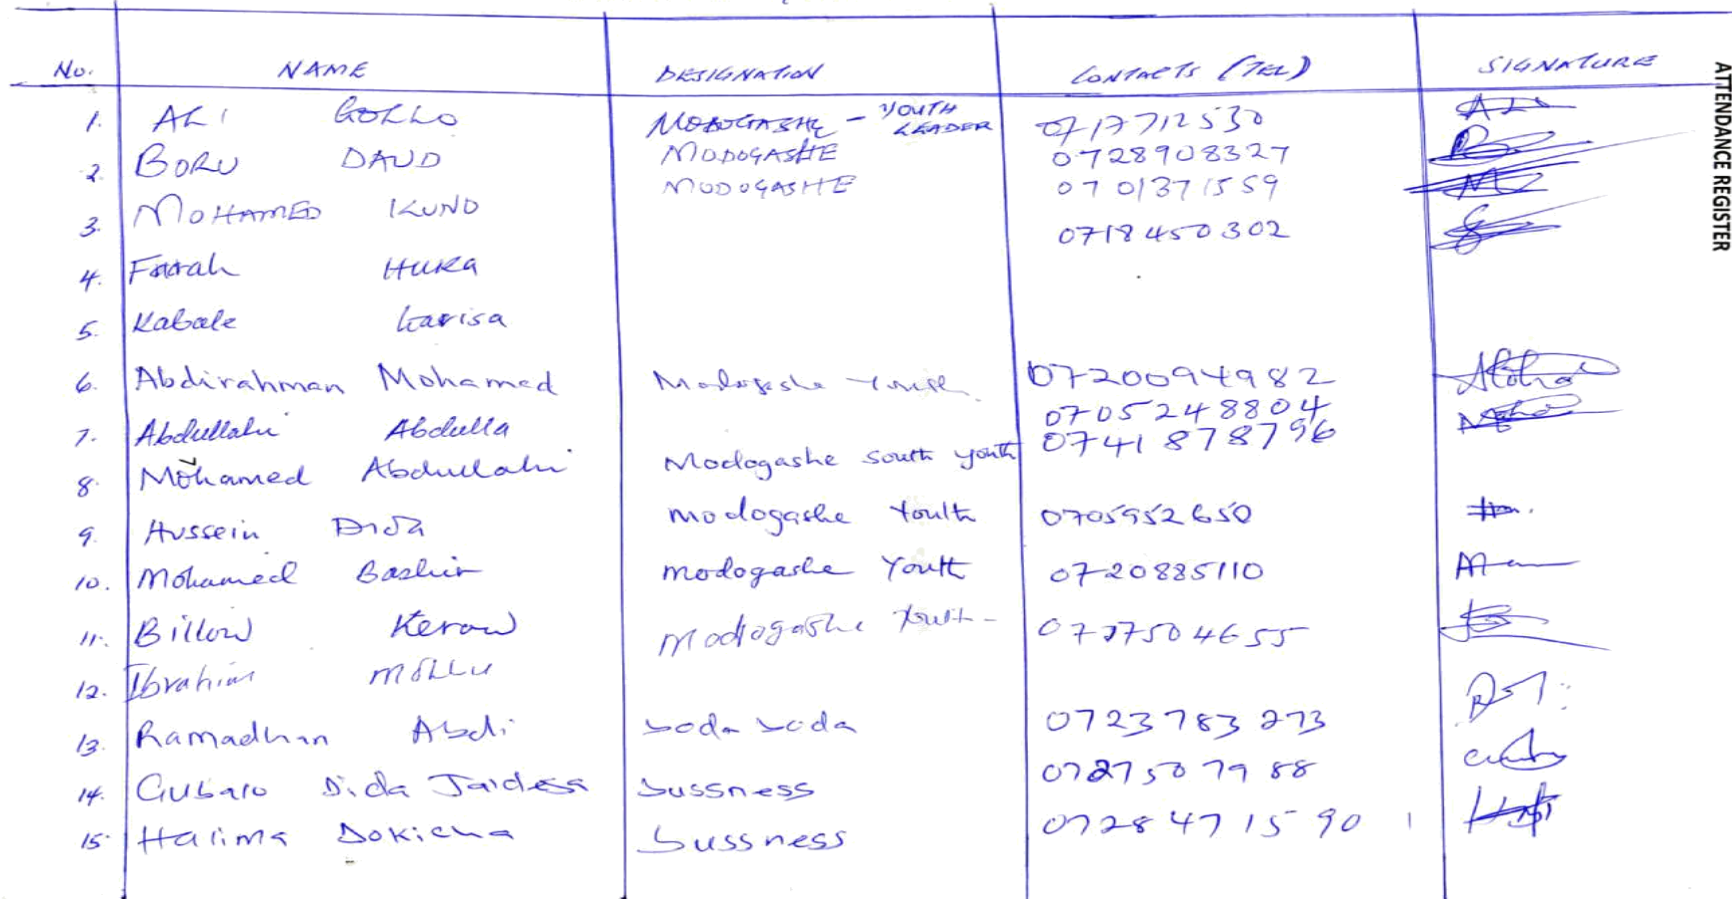 ATTENDANCE REGISTER
No. NAME DESIGNATION CONTACTS (TEL) SIGNATURE
1. ALI GOLLO MODOGASHE - YOUTH LEADER 0717712530
2. BORU DAUD MODOGASHE 0728908327
3. MOHAMED KUNO MODOGASHE 0701371559
4. Farah HUKA 0718450302
5. Kabale Garisa
6. Abdirahman Mohamed Modogashe Youth 0720094982
7. Abdullahi Abdulla 0705248804
8. Mohamed Abdullahi Modogashe South Youth 0741878796
9. Hussein DIDA Modogashe Youth 0705952650
10. Mohamed Bashir Modogashe Youth 0720885110
11. Billow Kerow Modogashe Youth - 0727504655
12. Ibrahim MOLLU
13. Ramadhan Abdi boda boda 0723783273
14. Gubalo Dida Jaidess bussness 0727507988
15. Halima Dokicha bussness 0728471590